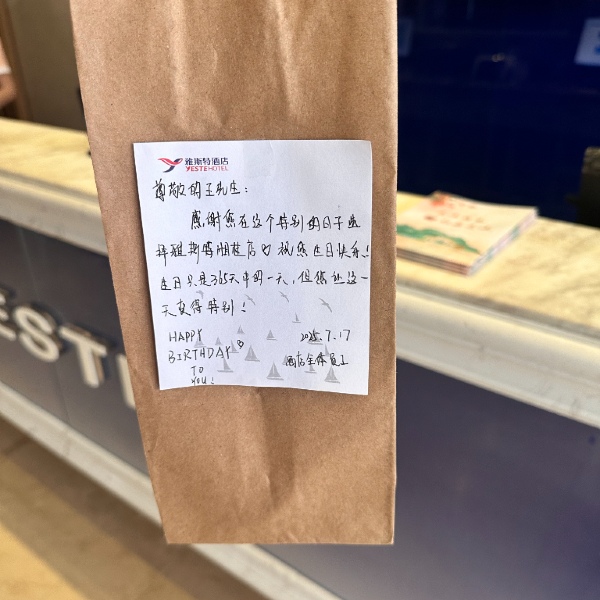 雅斯特酒店
YESTE HOTEL
尊敬的王先生：
感谢您在这个特别的日子选
择雅斯特酒店♡祝您生日快乐！
生日只是365天中的一天，但您让这一
天变得特别！
HAPPY
BIRTHDAY♡
TO
YOU!
2025.7.17
酒店全体员工
EST